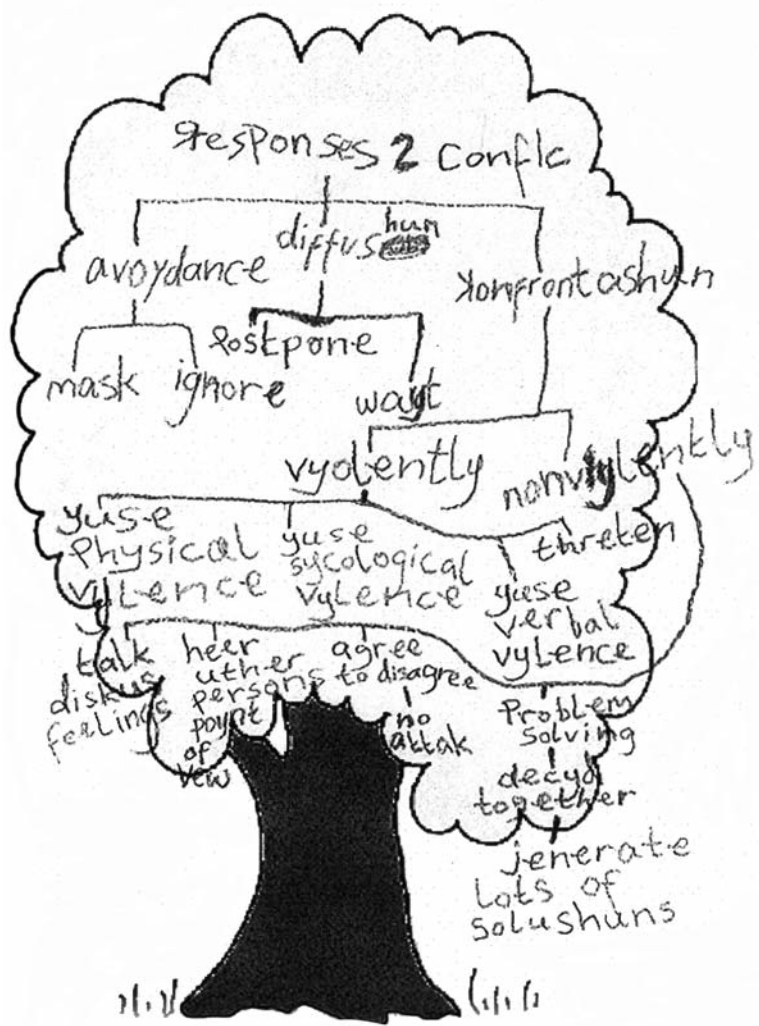 responses 2 conflc
avoydance
diffushun
konfrontashun
mask
ignore
postpone
wayt
vyolently
nonvylently
yuse
physical
vylence
yuse
sycological
vylence
yuse
verbal
vylence
threten
talk
diskus
feelings
heer
uther
persons
poynt
of
vew
agree
to disagree
no
attak
problem
solving
decyd
together
jenerate
lots of
solushuns